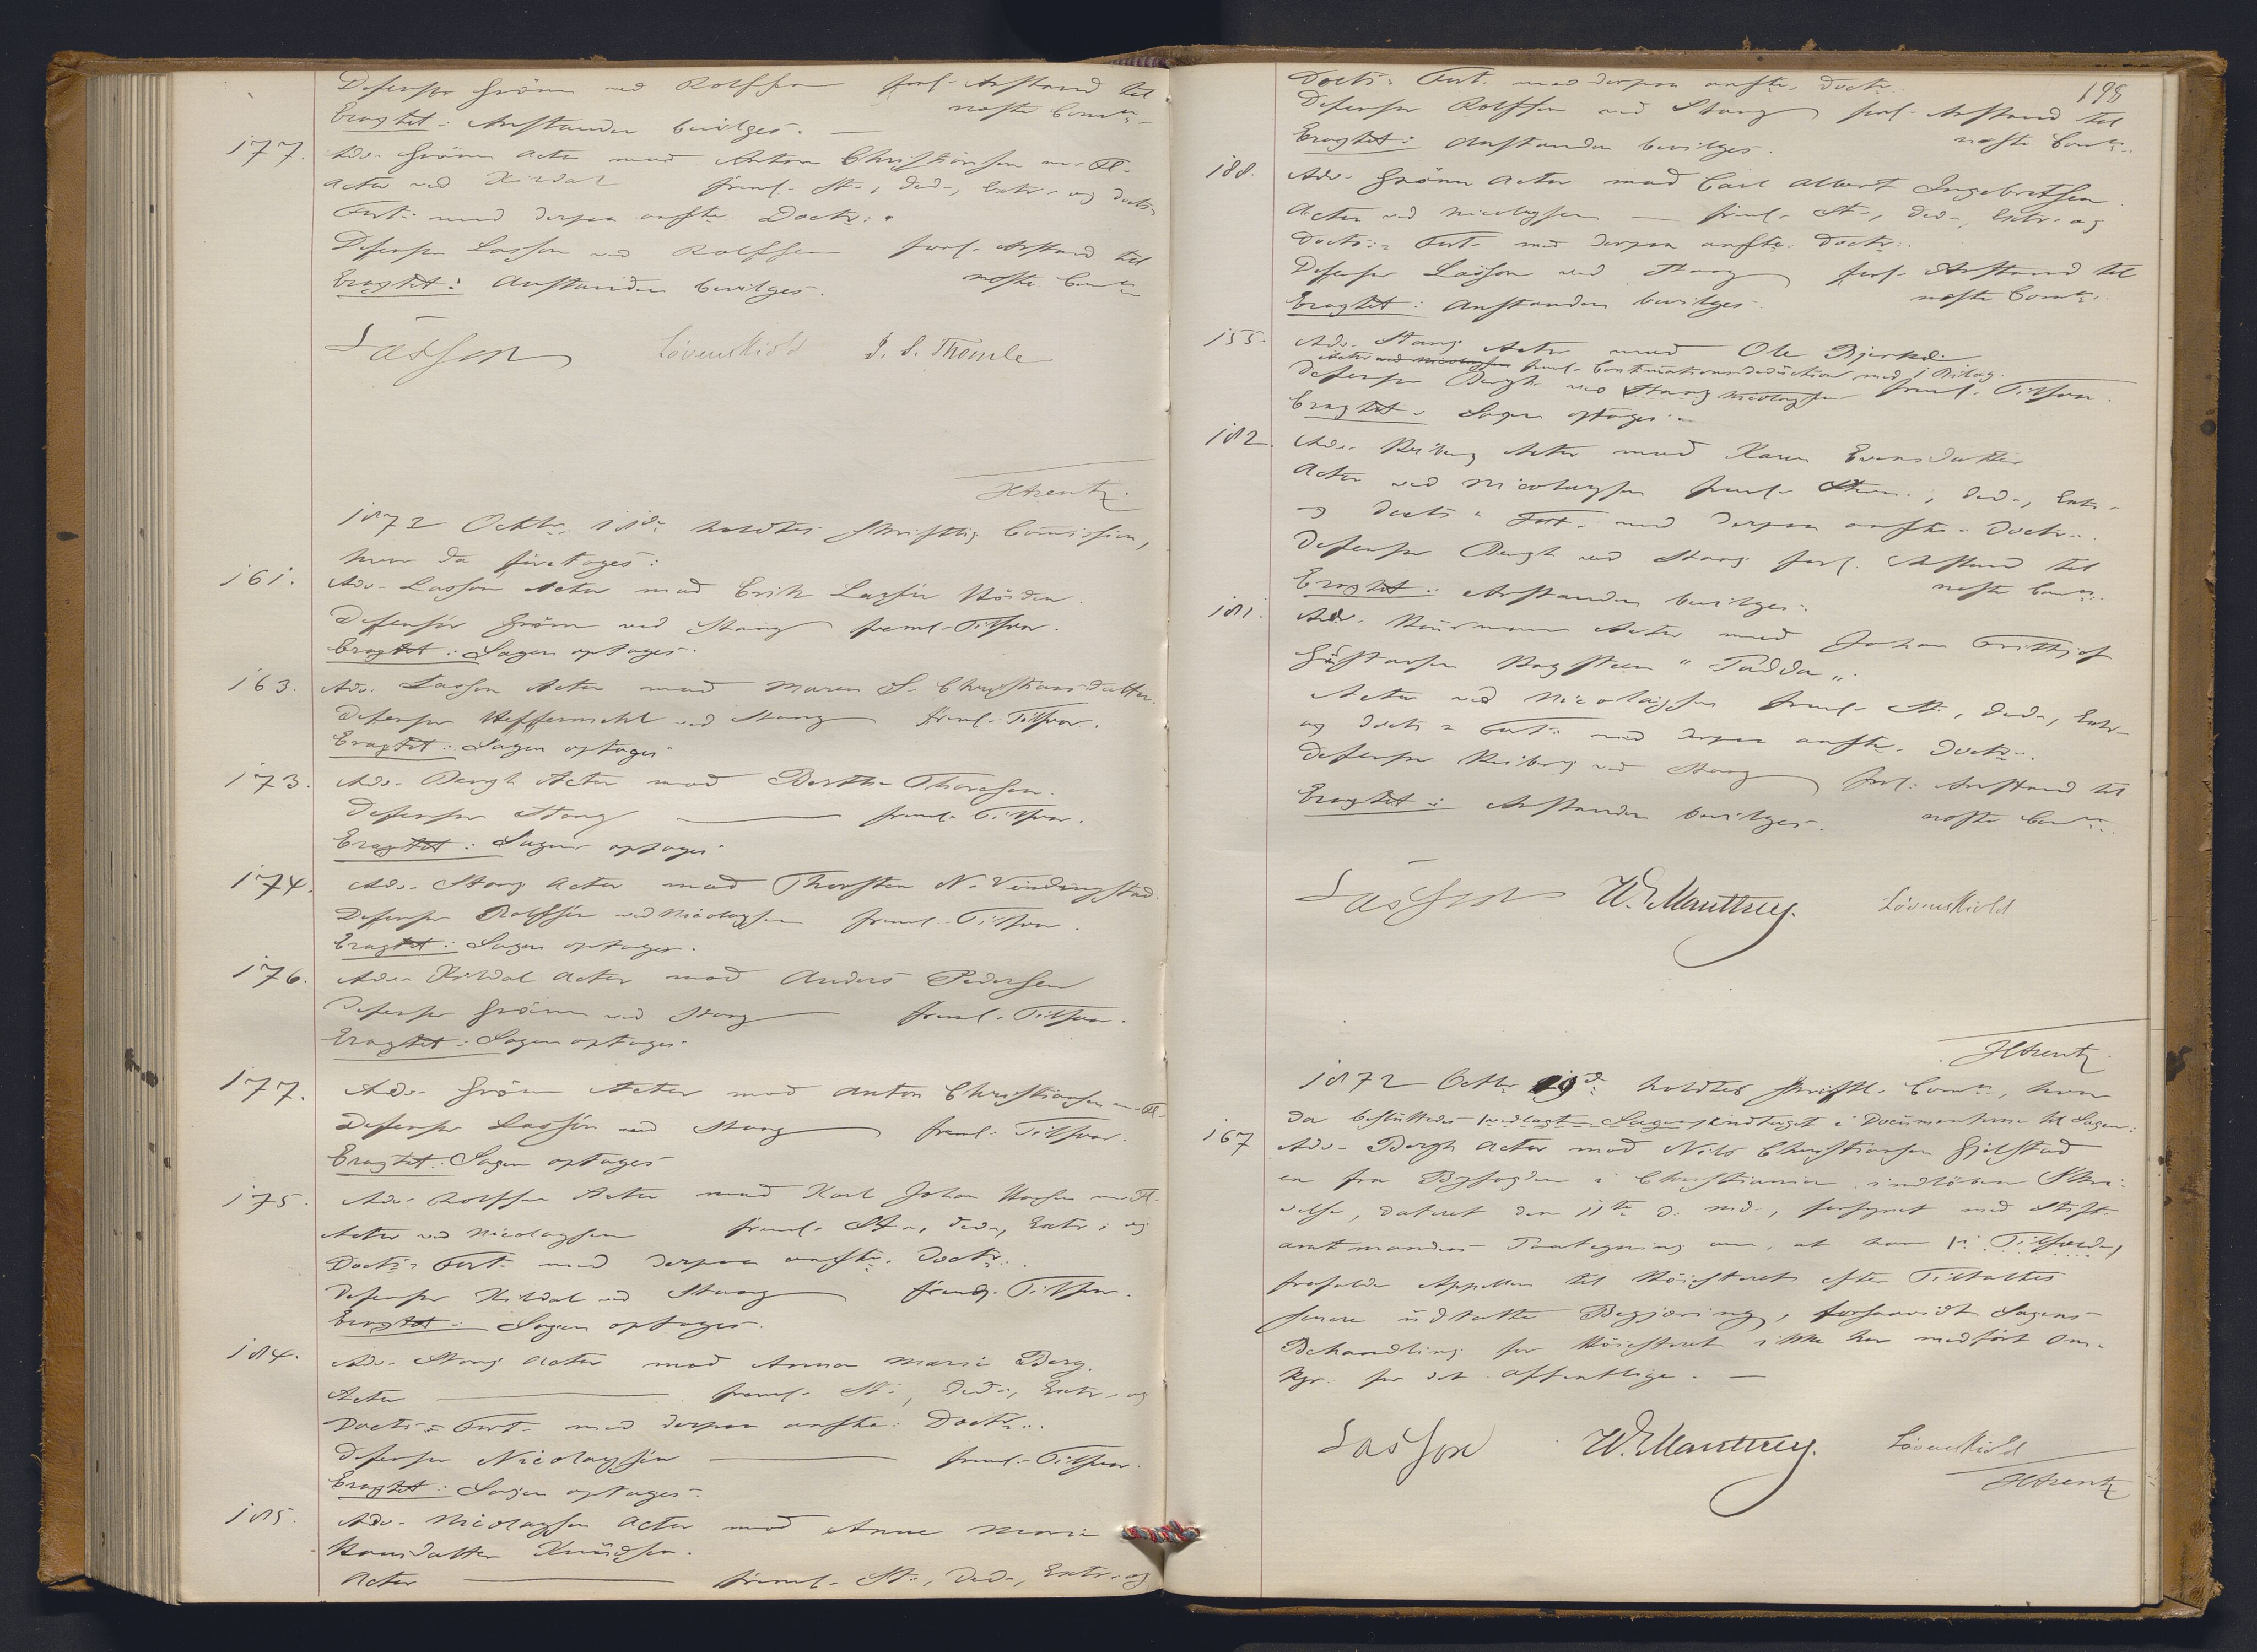 Defensor Grönn ved Rolffsen forl. Anstand til
Eragtet: Anstanden bevilges. — næste Comn.
177. Adv. Grönn Actor mod Anton Christiansen m. Fl.
Actor ved Kildal freml. St., Ded., Extr. og Docts.
Fort. med derpaa anfte. Doctr.
Defensor Lasson ved Rolffsen forl. Anstand til
Eragtet: Anstanden bevilges. næste Comn.
Lasson Løvenskiold J. S. Thomle
HArentz.
1872 Octbr. 11te holdtes skriftlig Commission,
hvor da foretoges:
161. Adv. Lasson Actor mod Erik Larsen
Defensor Grönn ved Stang freml. Tilsvar.
Eragtet: Sagen optages.
163. Adv. Lasson Actor mod Maren S. Christiansdatter.
Defensor Heffermehl ved Stang freml. Tilsvar.
Eragtet: Sagen optages.
173. Adv. Bergh Actor mod Berthe Thoresen.
Defensor Stang — freml. Tilsvar.
Eragtet: Sagen optages.
174. Adv. Stang Actor mod Thorsten N. Vindingstad.
Defensor Rolffsen ved Nicolaysen freml. Tilsvar.
Eragtet: Sagen optages.
176. Adv. Kildal Actor mod Anders Pedersen
Defensor Grönn ved Stang freml. Tilsvar.
Eragtet: Sagen optages.
177. Adv. Grönn Actor mod Anton Christiansen m. Fl.
Defensor Lasson ved Stang freml. Tilsvar.
Eragtet: Sagen optages
175. Adv. Rolffsen Actor mod Karl Johan Hansen m. Fl.
Actor ved Nicolaysen freml. St., Ded., Extr. og
Docts. Fort. med derpaa anfte. Doctr.
Defensor Kildal ved Stang freml. Tilsvar.
Eragtet: Sagen optages.
184. Adv. Stang Actor mod Anna Marie Berg.
Actor — freml. St., Ded., Extr. og
Docts. Fort. med derpaa anfte. Doctr.
Defensor Nicolaysen — freml. Tilsvar.
Eragtet: Sagen optages.
185. Adv. Nicolaysen Actor mod Anne Marie
Hansdatter Knudsen.
Actor — freml. St., Ded., Extr. og
198
Docts. Fort. med derpaa anfte. Doctr.
Defensor Rolffsen ved Stang forl. Anstand til
Eragtet: Anstanden bevilges. næste Comn.
188. Adv. Grönn Actor mod Carl Albert Ingebretsen
Actor ved Nicolaysen — freml. St., Ded., Extr. og
Docts. Fort. med derpaa anfte. Doctr.
Defensor Lasson ved Stang forl. Anstand til
Eragtet: Anstanden bevilges. næste Comn.
155. Adv. Stang Actor mod Ole
Actor ved Nicolaysen freml. Continuationsdeduction med 1 Bilag.
Defensor Bergh ved Stang Nicolaysen freml. Tilsvar.
Eragtet: Sagen optages.
182. Adv. Reiberg Actor mod Karen Evensdatter
Actor ved Nicolaysen freml. Stevn., Ded., Extr.
og Docts. Fort. med derpaa anfte. Doctr.
Defensor Bergh ved Stang forl. Anstand til
Eragtet: Anstanden bevilges. næste Comn.
181. Adv. Actor mod Johan Frithjof
Gustavsen "Tadda".
Actor ved Nicolaysen freml. St., Ded., Extr.
og Docts. Fort. med derpaa anfte. Doctr.
Defensor Reiberg ved Stang forl. Anstand til
Eragtet: Anstanden bevilges. næste Comn.
Lasson W. E. Manthey. Løvenskiold
HArentz.
1872 Octbr. 19de holdtes skriftl. Comn., hvor
da besluttedes indtaget i Documenterne til Sagen:
167 Adv. Bergh Actor mod Nils Christiansen Gjelstad
en fra Byfogden i Christiania indlöben Skri-
velse, dateret den 11te d. Md., forsynet med Stift-
amtmandens Paategning om, at han
frafalder Appellen til Höiesteret efter Tiltaltes
senere udtalte Begjæring, forsaavidt Sagens
Behandling for Höiesteret ikke har medfört Om-
kgr. for det Offentlige. —
Lasson W. E. Manthey. Løvenskiold
HArentz